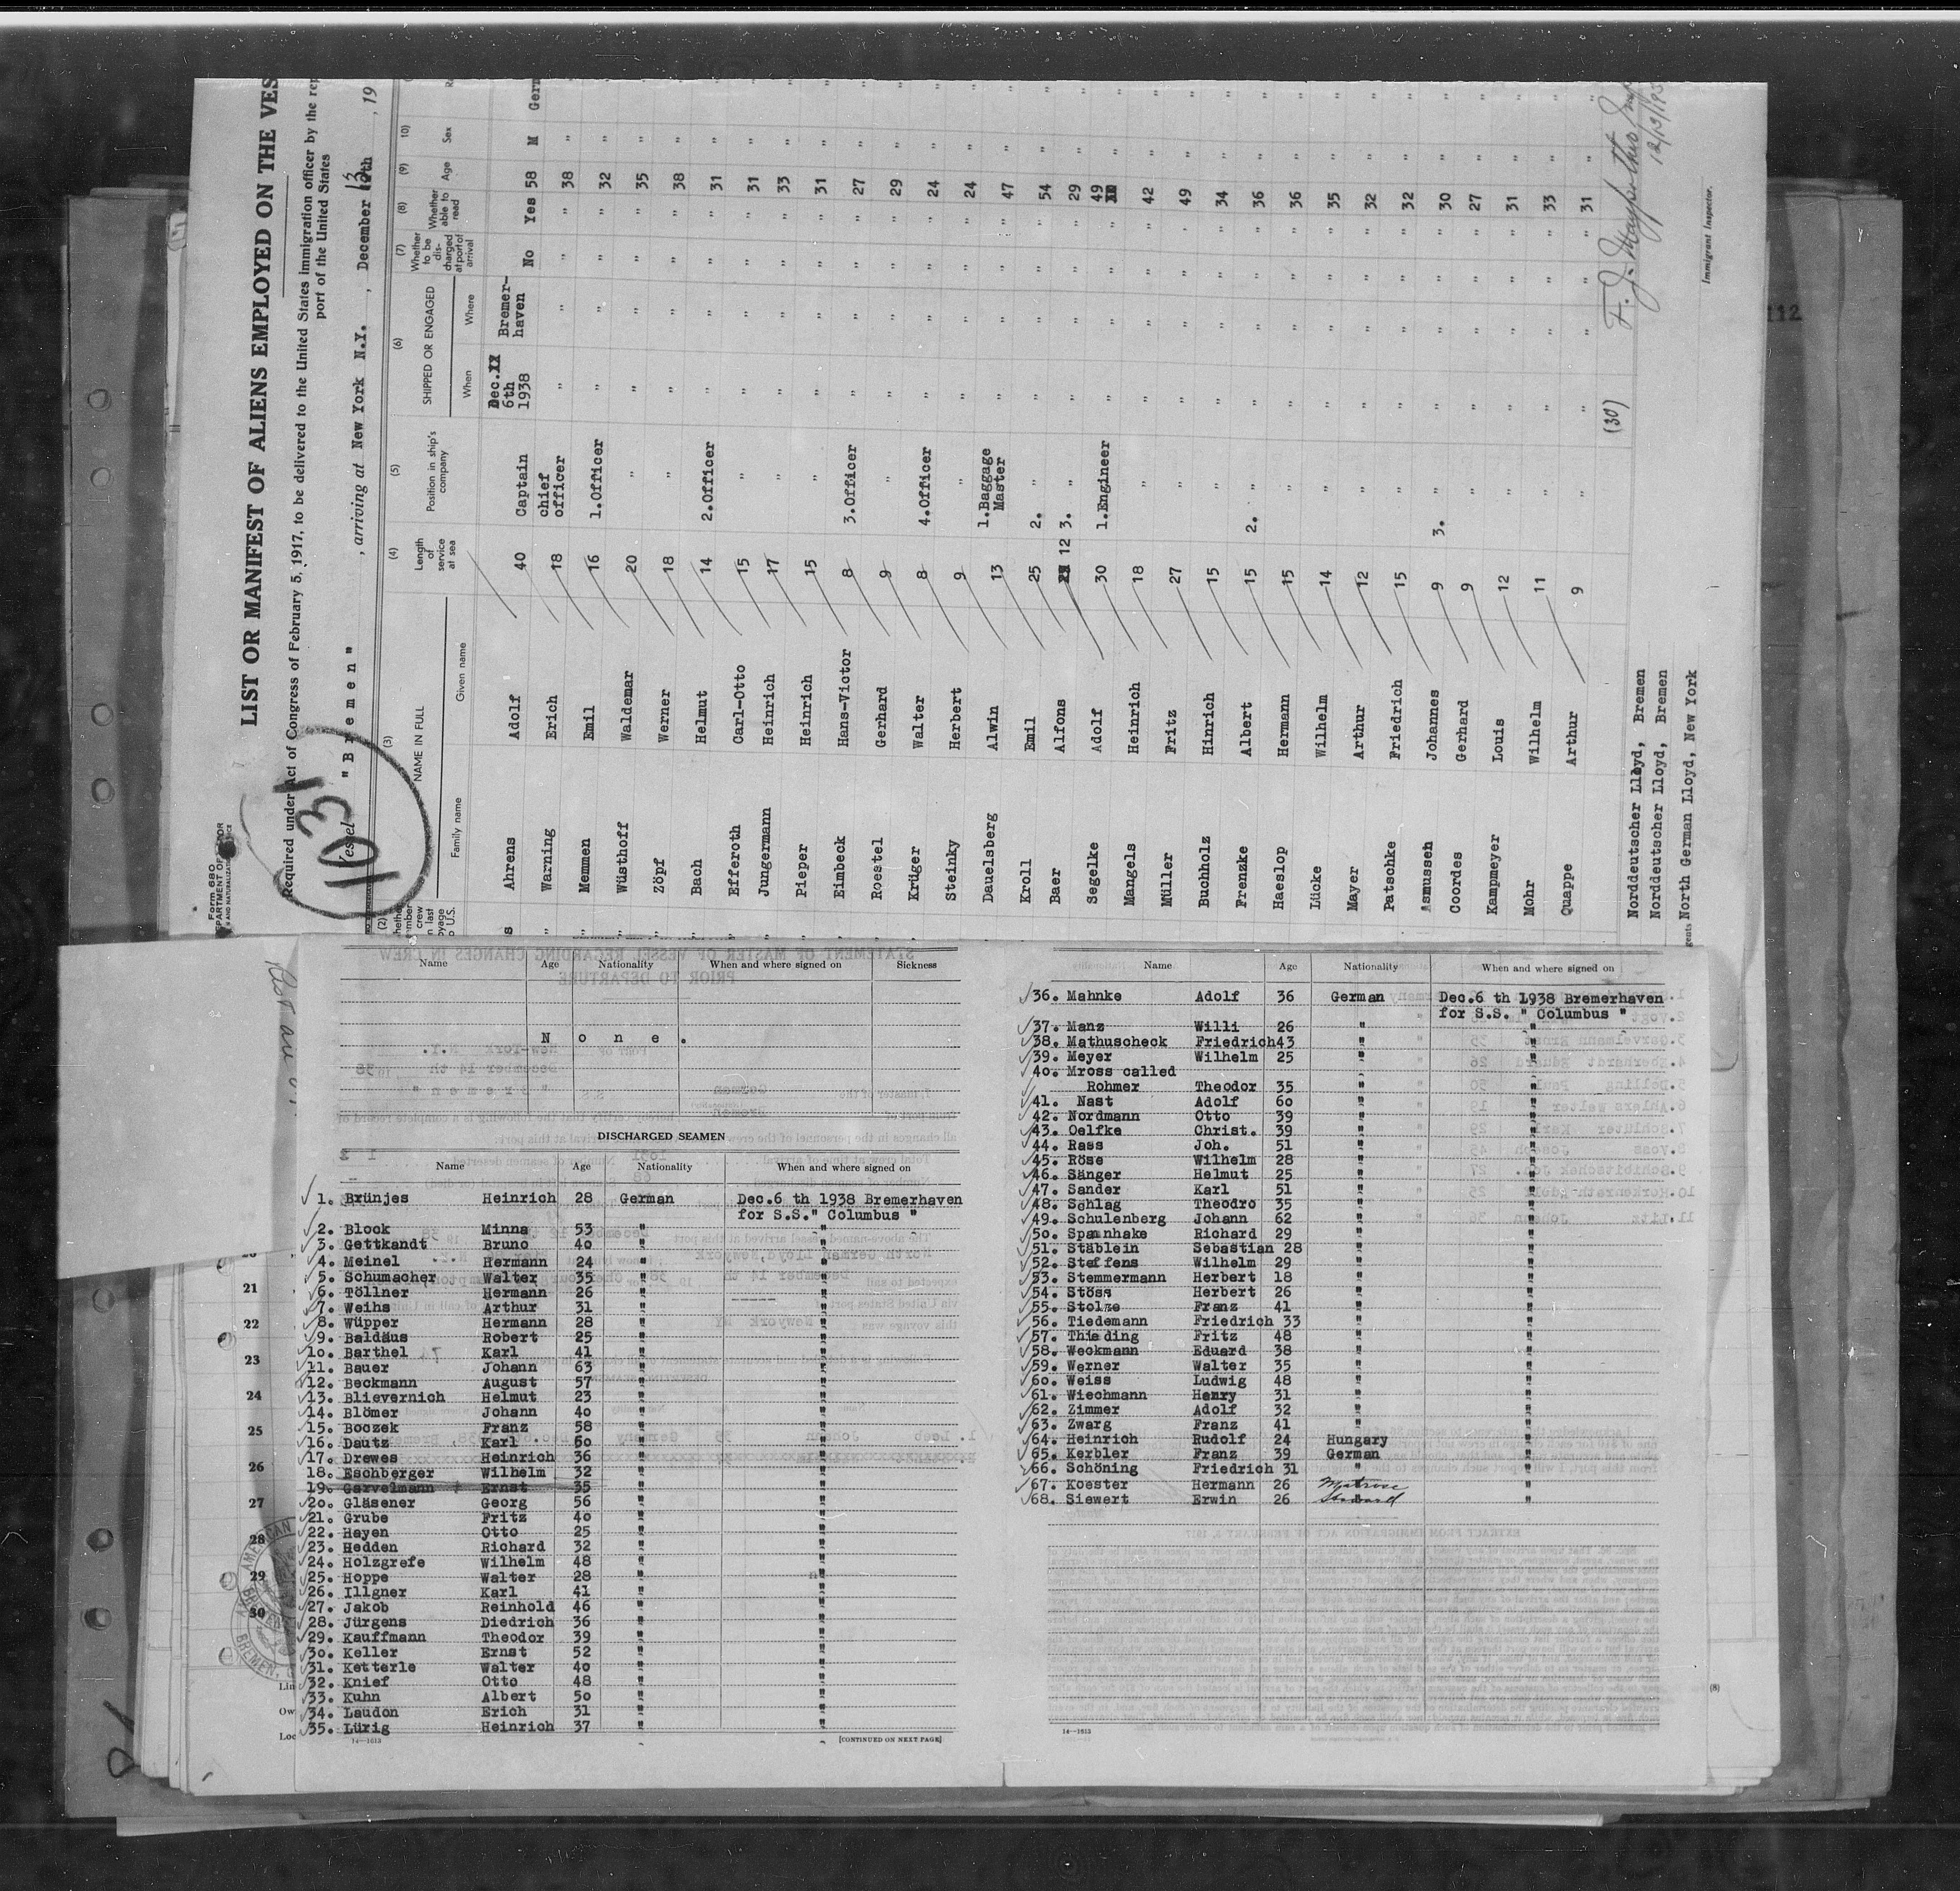 Form 680
LIST OR MANIFEST OF ALIENS EMPLOYED ON THE VES
Required under Act of Congress of February 5, 1917, to be delivered to the United States immigration officer by the rep
port of the United States
Vessel "Bremen" , arriving at New York N.Y. , December 13th , 19
1031
(2) (3) (4) (5) (6) (7) (8) (9) 10)
NAME IN FULL
Family name Given name
Length of service at sea
Position in ship's company
SHIPPED OR ENGAGED
When Where
Whether to be discharged at port of arrival
Whether able to read
Age
Sex
Ahrens Adolf 40 Captain Dec. 6th 1938 Bremerhaven No Yes 58 M Germ
Warning Erich 18 chief officer " " " " 38 " "
Memmen Emil 16 1.Officer " " " " 32 " "
Wüsthoff Waldemar 20 " " " " " 35 " "
Zöpf Werner 18 " " " " " 38 " "
Bach Helmut 14 2.Officer " " " " 31 " "
Efferoth Carl-Otto 15 " " " " " 31 " "
Jungermann Heinrich 17 " " " " " 33 " "
Pieper Heinrich 15 " " " " " 31 " "
Eimbeck Hans-Victor 8 3.Officer " " " " 27 " "
Roestel Gerhard 9 " " " " " 29 " "
Krüger Walter 8 4.Officer " " " " 24 " "
Steinky Herbert 9 " " " " " 24 " "
Dauelsberg Alwin 13 1.Baggage Master " " " " 47 " "
Kroll Emil 25 2. " " " " " 54 " "
Baer Alfons 12 3. " " " " " 29 " "
Segelke Adolf 30 1.Engineer " " " " 49 " "
Mangels Heinrich 18 " " " " " 42 " "
Müller Fritz 27 " " " " " 49 " "
Buchholz Hinrich 15 " " " " " 34 " "
Frenzke Albert 15 2. " " " " " 36 " "
Haeslop Hermann 15 " " " " " 36 " "
Lücke Wilhelm 14 " " " " " 35 " "
Mayer Arthur 12 " " " " " 32 " "
Patschke Friedrich 15 " " " " " 32 " "
Asmusseh Johannes 9 3. " " " " " 30 " "
Coordes Gerhard 9 " " " " " 27 " "
Kampmeyer Louis 12 " " " " " 31 " "
Mohr Wilhelm 11 " " " " " 33 " "
Quappe Arthur 9 " " " " " 31 " "
(30)
Norddeutscher Lloyd, Bremen
Norddeutscher Lloyd, Bremen
gents North German Lloyd, New York
Immigrant Inspector.
112
Name Age Nationality When and where signed on Sickness
None.
DISCHARGED SEAMEN
Name Age Nationality When and where signed on
1. Brünjes Heinrich 28 German Dec.6 th 1938 Bremerhaven
for S.S." Columbus "
2. Block Minna 53 " "
3. Gettkandt Bruno 40 " "
4. Meinel Hermann 24 " "
5. Schumacher Walter 35 " "
6. Töllner Hermann 26 " "
7. Weihs Arthur 31 " "
8. Wüpper Hermann 28 " "
9. Baldäus Robert 25 " "
10. Barthel Karl 41 " "
11. Bauer Johann 63 " "
12. Beckmann August 57 " "
13. Blievernich Helmut 23 " "
14. Blömer Johann 40 " "
15. Boczek Franz 58 " "
16. Dautz Karl 60 " "
17. Drewes Heinrich 36 " "
18. Eschberger Wilhelm 32 " "
19. Garvelmann Ernst 35 " "
20. Gläsener Georg 56 " "
21. Grube Fritz 40 " "
22. Hayen Otto 25 " "
23. Hedden Richard 32 " "
24. Holzgrefe Wilhelm 48 " "
25. Hoppe Walter 28 " "
26. Illgner Karl 41 " "
27. Jakob Reinhold 46 " "
28. Jürgens Diedrich 36 " "
29. Kauffmann Theodor 39 " "
30. Keller Ernst 52 " "
31. Ketterle Walter 40 " "
32. Knief Otto 48 " "
33. Kuhn Albert 50 " "
34. Laudon Erich 31 " "
35. Lürig Heinrich 37 " "
14—1613 [CONTINUED ON NEXT PAGE]
Name Age Nationality When and where signed on
36. Mahnke Adolf 36 German Dec.6 th 1938 Bremerhaven
for S.S. " Columbus "
37. Manz Willi 26 " "
38. Mathuscheck Friedrich 43 " "
39. Meyer Wilhelm 25 " "
40. Mross called
Rohmer Theodor 35 " "
41. Nast Adolf 60 " "
42. Nordmann Otto 39 " "
43. Oelfke Christ. 39 " "
44. Rass Joh. 51 " "
45. Röse Wilhelm 28 " "
46. Sänger Helmut 25 " "
47. Sander Karl 51 " "
48. Schlag Theodro 35 " "
49. Schulenberg Johann 62 " "
50. Spannhake Richard 29 " "
51. Stäblein Sebastian 28 " "
52. Steffens Wilhelm 29 " "
53. Stemmermann Herbert 18 " "
54. Stöss Herbert 26 " "
55. Stolze Franz 41 " "
56. Tiedemann Friedrich 33 " "
57. Thieding Fritz 48 " "
58. Weckmann Eduard 38 " "
59. Werner Walter 35 " "
60. Weiss Ludwig 48 " "
61. Wiechmann Henry 31 " "
62. Zimmer Adolf 32 " "
63. Zwarg Franz 41 " "
64. Heinrich Rudolf 24 Hungary "
65. Kerbler Franz 39 German "
66. Schöning Friedrich 31 " "
67. Koester Hermann 26 Matrose "
68. Siewert Erwin 26 Steward "
14—1613
21
22
23
24
25
26
27
28
29
30
Lin
Ow
Loc
(8)